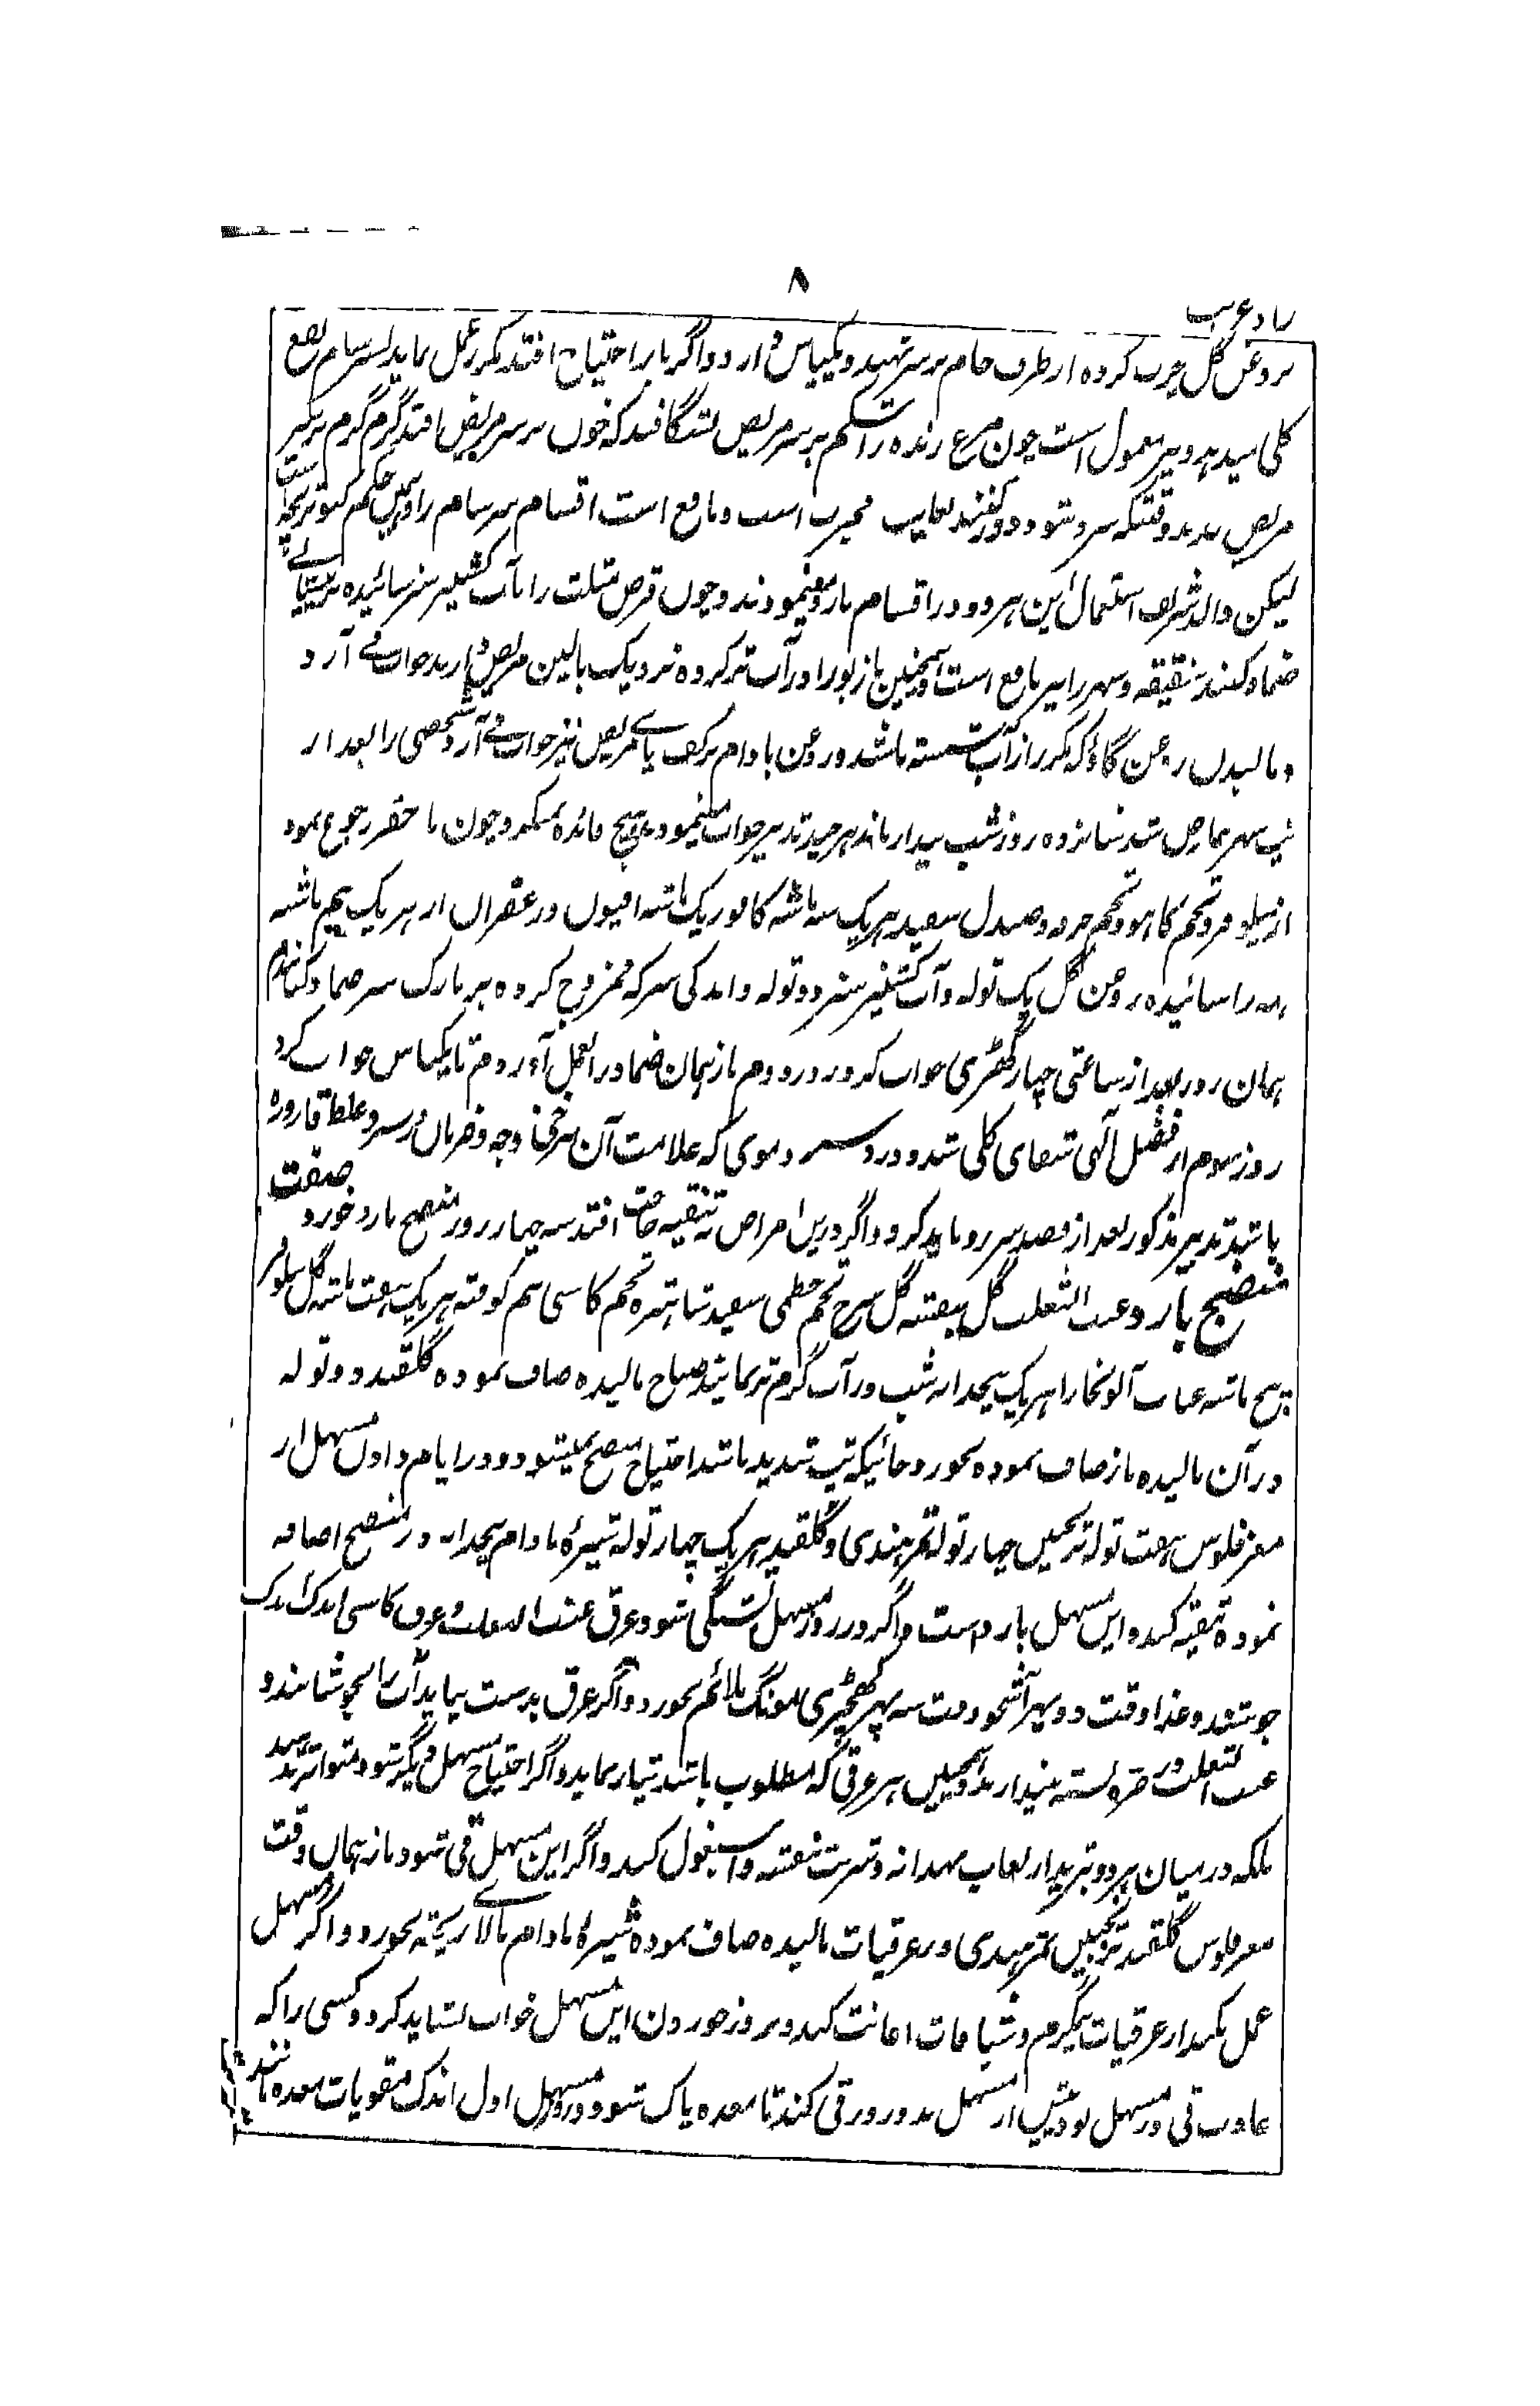 ۸
زاد غریب
بروغن گل چرب کرده از طرف خام بر سر نهند و یکپاس دارد و اگر باز احتیاج افتد مکرر عمل نماید سرسام نفع
کلی میدهد و نیز معمول است چون مرغ زنده را شکم بر سر مریض بشگافند که خون بر سر مریض افتد گرم گرم بر سر
مریض بندند وقتیکه سرد شود دور کنند بغایت مجرب است و نافع است اقسام سرسام را و همین حکم کبوتر بچه است
لیکن والد شریف استعمال این هر دو در اقسام بارد میفرمودند و چون قرص مثلث را بآب کشنیز سبز سائیده بر پیشانی
ضماد کنند شقیقه و سهر را نیز نافع است و همچنین تازبو را در آب تر کرده نزدیک بالین مریض دارند خواب می آرد
و مالیدن روغن گاؤ که مکرر از آب شسته باشد و روغن بادام بر کف پای مریض نیز خواب می آرد شخصی را بعد از
تپ سهر عارض شد شانزده روز شب بیدار ماند هر چند تدبیر خواب مینمود هیچ فائده نمیکرد چون باحقر رجوع نمود
از نیلوفر و تخم کاهو و تخم خرفه و صندل سفید هر یک سه ماشه کافور یک ماشه افیون و زعفران از هر یک نیم ماشه
همه را سائیده روغن گل یک توله و آب کشنیز سبز دو توله و اندکی سرکه ممزوج کرده بر تارک سر ضماد کنانیدم
همان روز بعد از ساعتی چهار گهڑی خواب کرد روز دوم باز همان ضماد بعمل آورد تا یکپاس خواب کرد
روز سوم از فضل الهی شفای کلی شد و درد سر دموی که علامت آن سرخی وجه و ضربان در سر و غلظ قاروره
باشد تدبیر مذکور بعد از فصد سررو باید کرد و اگر درین امراض به تنقیه حاجت افتد سه چهار روز منضج بارد خورد صفت
منضج بارد عنب الثعلب گل بنفشه گل سرخ تخم خطمی سفید شاهتره تخم کاسنی نیم کوفته هر یک هفت ماشه گل نیلوفر
پنج ماشه عناب آلو بخارا هر یک پنجدانه شب در آب گرم تر نمایند صباح مالیده صاف نموده گلقند دو توله
در آن مالیده باز صاف نموده بخورد جائیکه تپ شدید باشد احتیاج منضج نمیشود و در ایام دوا اول مسهل از
مغز فلوس هفت توله ترنجبین چهار توله تمر هندی و گلقند هر یک چهار توله شیره بادام پنجدانه در منضج اضافه
نموده تنقیه کند و این مسهل بارد است و اگر در روز مسهل تشنگی شود عرق عنب الثعلب و عرق کاسنی اندک اندک
بنوشند و غذا وقت دوپهر آشجو و وقت سه پهر کهچڑی مونگ ملائم بخورد و اگر عرق بدست نیاید آب را بجوشانند و
عنب الثعلب در خرقه بسته بیندازند و همچنین هر عرقی که مطلوب باشد تیار نماید و اگر احتیاج مسهل دیگر شود متواتر ندهند
بلکه در میان هر دو تبرید از لعاب بهدانه و شربت بنفشه و اسپغول کند و اگر این مسهل قی شود باز همان وقت
مغز فلوس گلقند ترنجبین تمر هندی در عرقیات مالیده صاف نموده شیره بادام بالای ریخته بخورد و اگر مسهل
عمل نکند از عرقیات نیمگرم و شیافات اعانت کند و روز خوردن این مسهل خواب نشاید کرد و کسی را که
عادت قی در مسهل بود پیش از مسهل بدو روز قی کند تا معده پاک شود و در مسهل اول اندک مقویات معده مانند